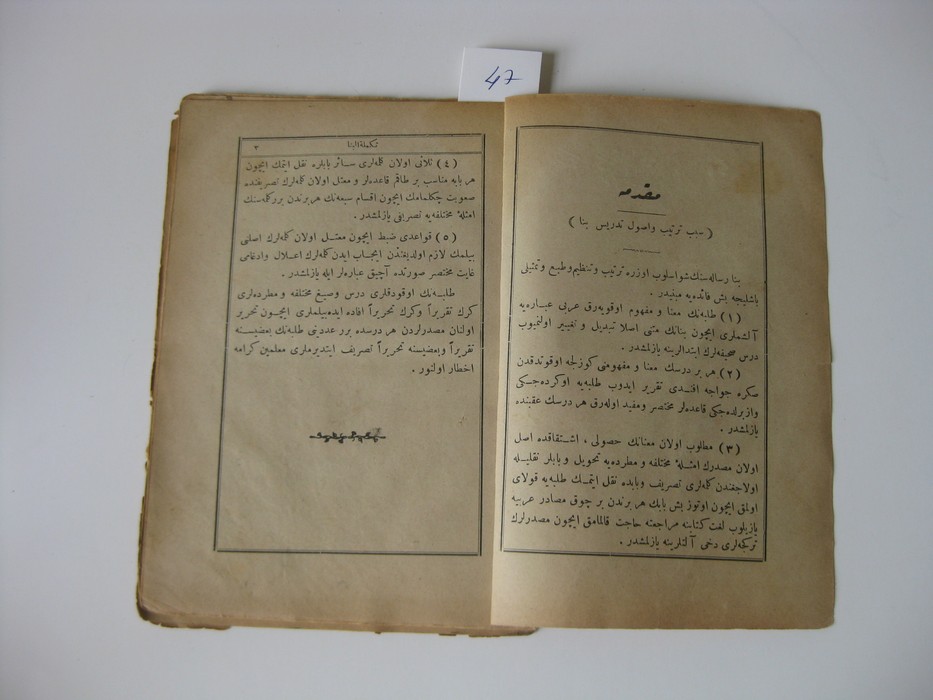 47
مقدمه
( سبب ترتیب واصول تدریس بنا )
بنا رساله‌سنك شواسلوب اوزره ترتیب وتنظیم وطبع وتمثیلی
باشلیجه بش فائده‌یه مبنیدر .
( ١ ) طلبه‌نك معنا و مفهوم اوقویه‌رق عربی عباره‌یه
آلشملری ایچون بنانك متنی اصلا تبدیل و تغییر اولنمیوب
درس صحیفه‌لرك ابتدالرینه یازلمشدر .
( ٢ ) هر بر درسك معنا و مفهومنی كوزلجه اوقوتدقدن
صكره خواجه افندی تقریر ایدوب طلبه‌یه اوكرده‌جكی
وازبرلده‌جكی قاعده‌لر مختصر ومفید اوله‌رق هر درسك عقبنده
یازلمشدر .
( ٣ ) مطلوب اولان معنانك حصولی ، اشتقاقده اصل
اولان مصدرك امثلهٔ مختلفه و مطرده‌یه تحویل و بابلر نقلیله
اولاجغندن كله‌لری تصریف وبابده نقل ایتمك طلبه‌یه قولای
اولمق ایچون اوتوز بش بابك هر برندن بر چوق مصادر عربیه
یازیلوب لغت كتابنه مراجعته حاجت قالمامق ایچون مصدرلرك
تركجه‌لری دخی آلتلرینه یازلمشدر .
تكملة البنا
٣
( ٤ ) ثلاثی اولان كله‌لری سائر بابلره نقل ایتمك ایچون
هر بابه مناسب بر طاقم قاعده‌لر و معتل اولان كله‌لرك تصریفنده
صعوبت چكلمامك ایچون اقسام سبعه‌نك هربرندن بررکله‌سنك
امثلهٔ مختلفه‌یه تصریفی یازلمشدر .
( ٥ ) قواعدی ضبط ایچون معتل اولان كله‌لرك اصلنی
بیلمك لازم اولدیغندن ایجاب ایدن كله‌لرك اعلال وادغامی
غایت مختصر صورتده آچیق عباره‌لر ایله یازلمشدر .
طلبه‌نك اوقودقلری درس وصیغ مختلفه و مطرده‌لری
كرك تقریراً وكرك تحریراً افاده ایده‌بیلملری ایچون تحریر
اولنان مصدرلردن هر درسده برر عددینی طلبه‌نك بعضیسنه
تقریراً وبعضیسنه تحریراً تصریف ایتدیرملری معلمین كرامه
اخطار اولنور .